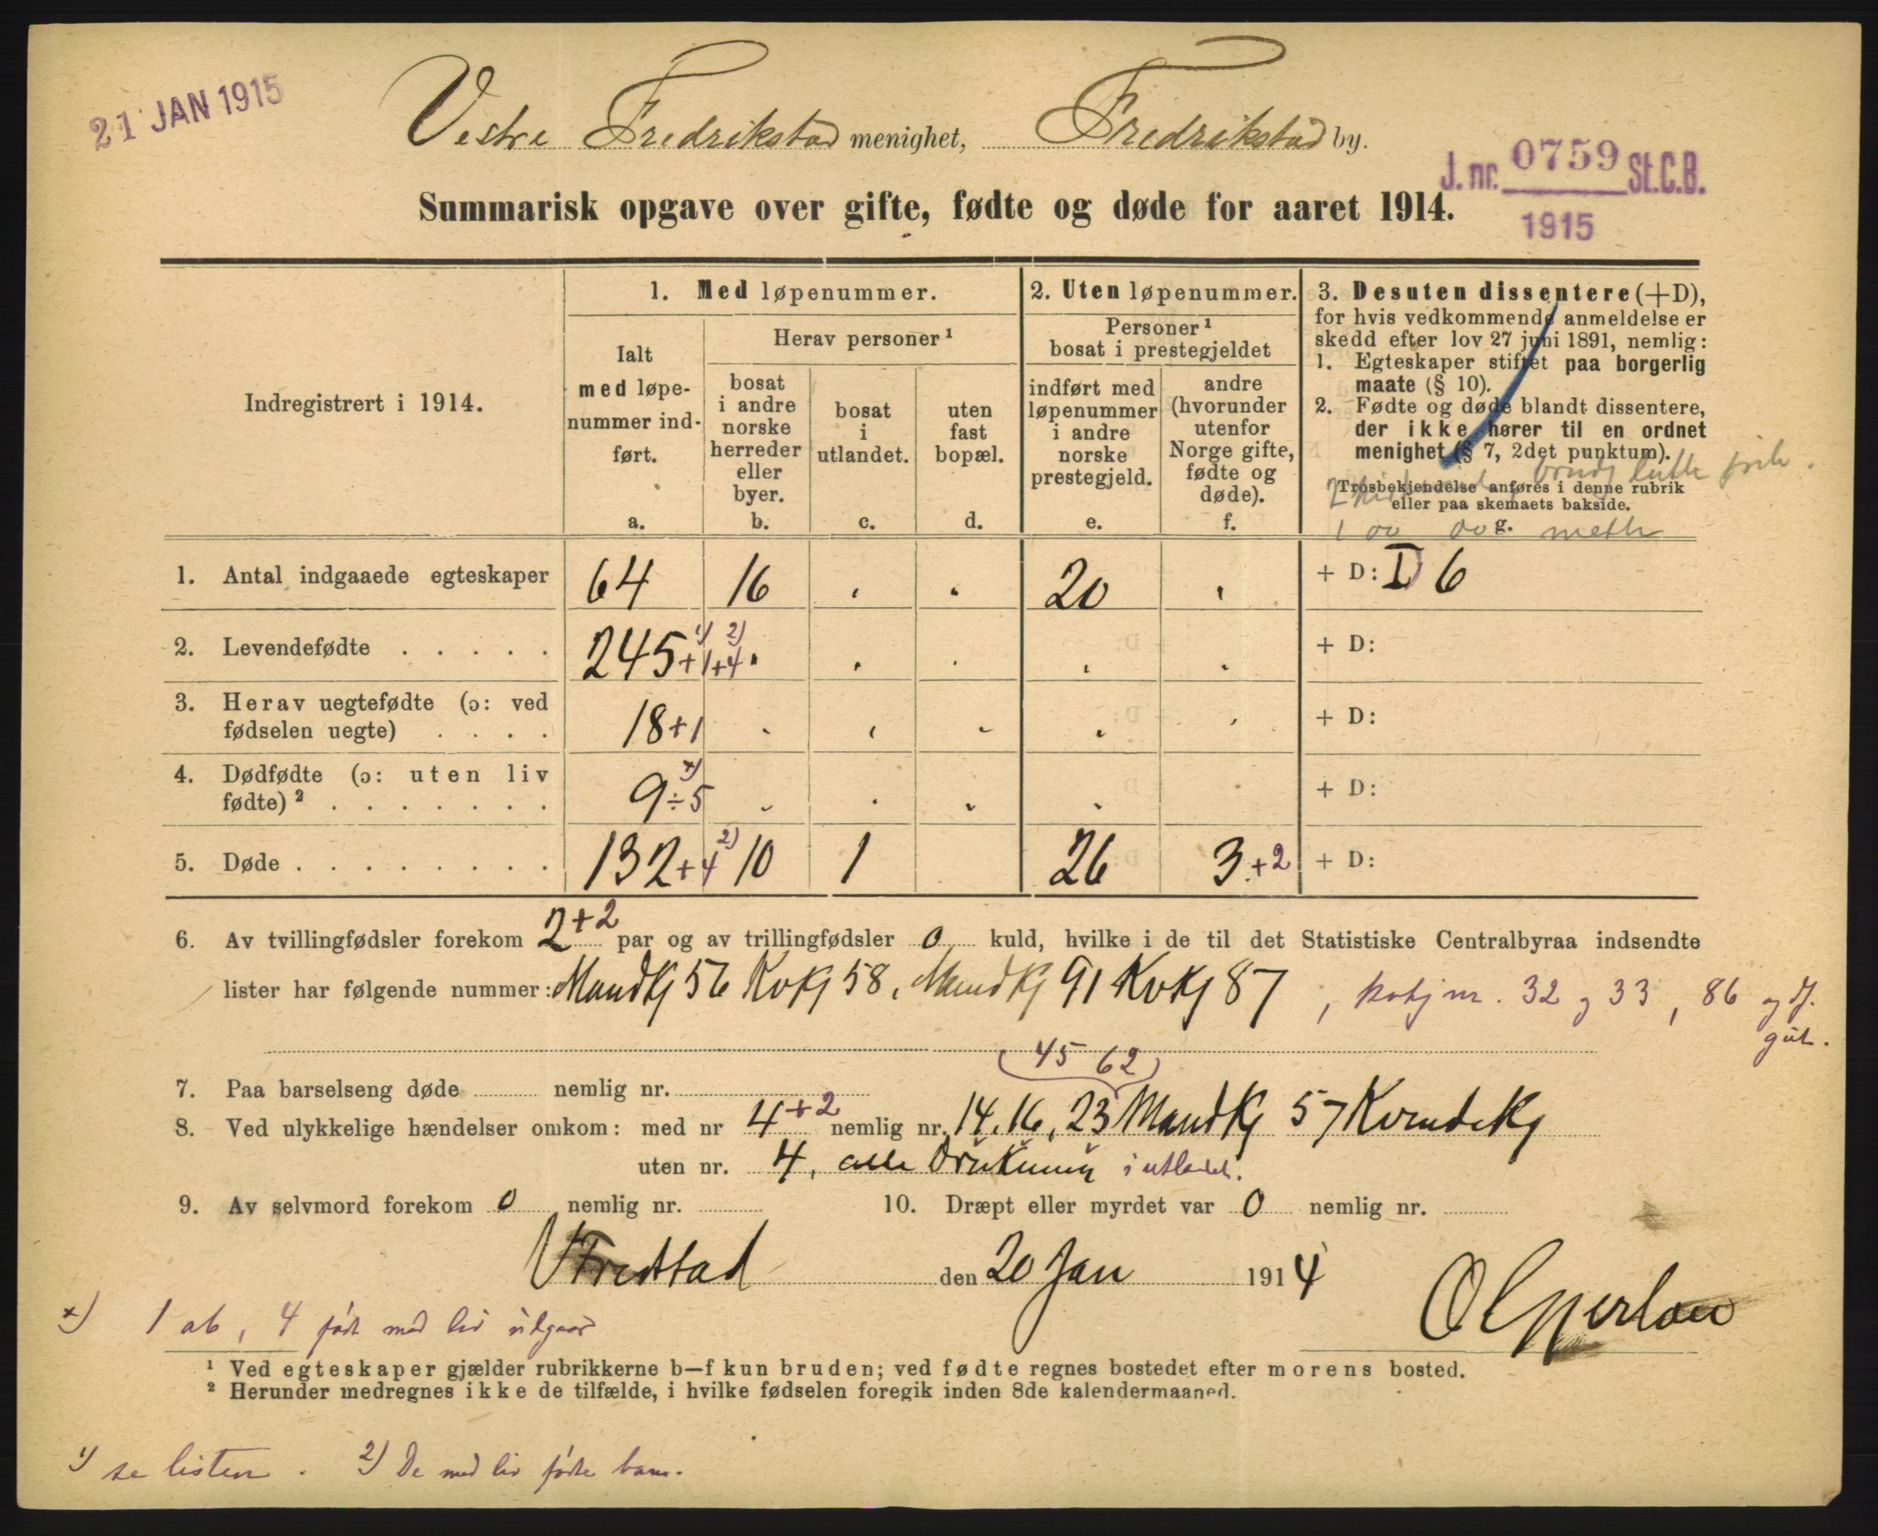 21 JAN 1915
Vestre Fredrikstad menighet, Fredrikstad by.
J. nr. 0759 St.C.B.
1915
Summarisk opgave over gifte, fødte og døde for aaret 1914.
Indregistrert i 1914.
1. Med løpenummer.
Ialt med løpenummer indført. a.
Herav personer ¹
bosat i andre norske herreder eller byer. b.
bosat i utlandet. c.
uten fast bopæl. d.
2. Uten løpenummer.
Personer ¹ bosat i prestegjeldet
indført med løpenummer i andre norske prestegjeld. e.
andre (hvorunder utenfor Norge gifte, fødte og døde). f.
3. Desuten dissentere (+D),
for hvis vedkommende anmeldelse er
skedd efter lov 27 juni 1891, nemlig:
1. Egteskaper stiftet paa borgerlig
maate (§ 10).
2. Fødte og døde blandt dissentere,
der ikke hører til en ordnet
menighet (§ 7, 2det punktum).
Trosbekjendelse anføres i denne rubrik
eller paa skemaets bakside.
g.
1. Antal indgaaede egteskaper 64 16 20 + D: 6
2. Levendefødte . . . . . 245 +1 ¹) +4 ²) + D:
3. Herav uegtefødte (ɔ: ved
fødselen uegte) . . . . 18+1 + D:
4. Dødfødte (ɔ: uten liv
fødte) ² . . . . . . . 9÷5 ×) + D:
5. Døde . . . . . . . . 132+4 ²) 10 1 26 3+2 + D:
6. Av tvillingfødsler forekom 2+2 par og av trillingfødsler 0 kuld, hvilke i de til det Statistiske Centralbyraa indsendte
lister har følgende nummer: Mandkj 56 Kvkj 58, Mandkj 91 Kvkj 87, kvkj nr. 32 og 33, 86 og df.
gut.
45 62
7. Paa barselseng døde nemlig nr.
8. Ved ulykkelige hændelser omkom: med nr 4+2 nemlig nr. 14, 16, 23 Mandkj 57 Kvindekj
uten nr. 4, alle i utlandet.
9. Av selvmord forekom 0 nemlig nr. 10. Dræpt eller myrdet var 0 nemlig nr.
den 20 Jan 1914
×) 1 ab, 4 født med liv utgaar
¹ Ved egteskaper gjælder rubrikkerne b—f kun bruden; ved fødte regnes bostedet efter morens bosted.
² Herunder medregnes ikke de tilfælde, i hvilke fødselen foregik inden 8de kalendermaaned.
¹) se listen. ²) De med liv fødte barn.